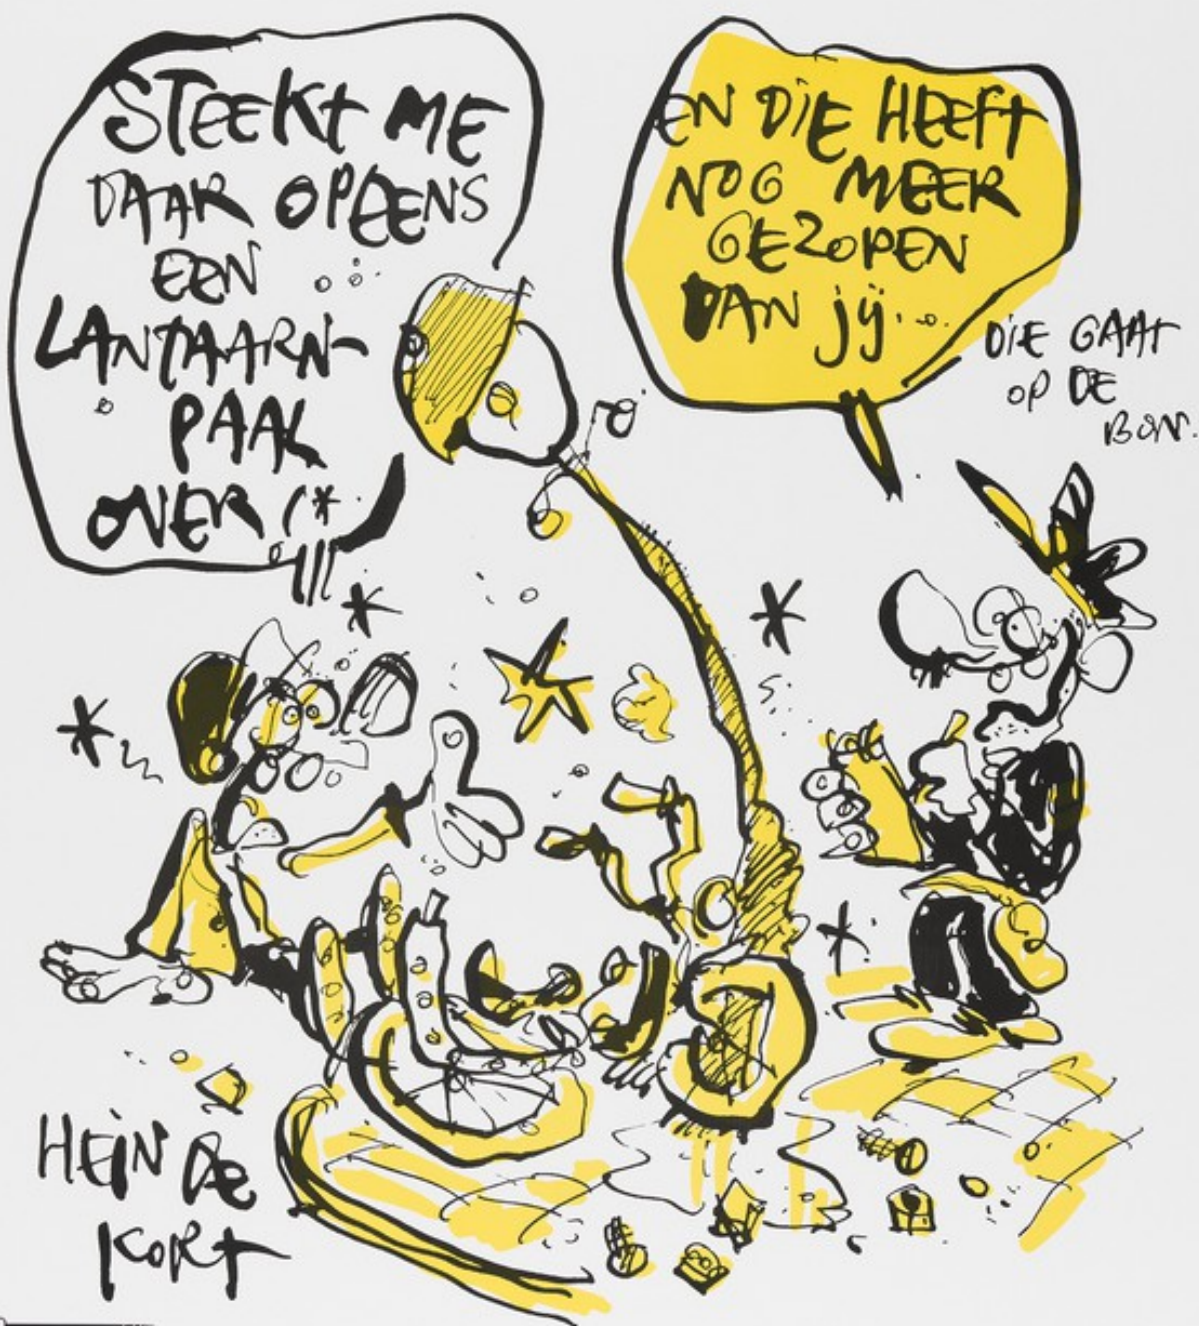 STEEKT ME
DAAR OPEENS
EEN
LANTAARN-
PAAL
OVER !*
EN DIE HEEFT
NOG MEER
GEZOPEN
DAN jij...
DIE GAAT
OP DE
BON.
HEIN De
KORT